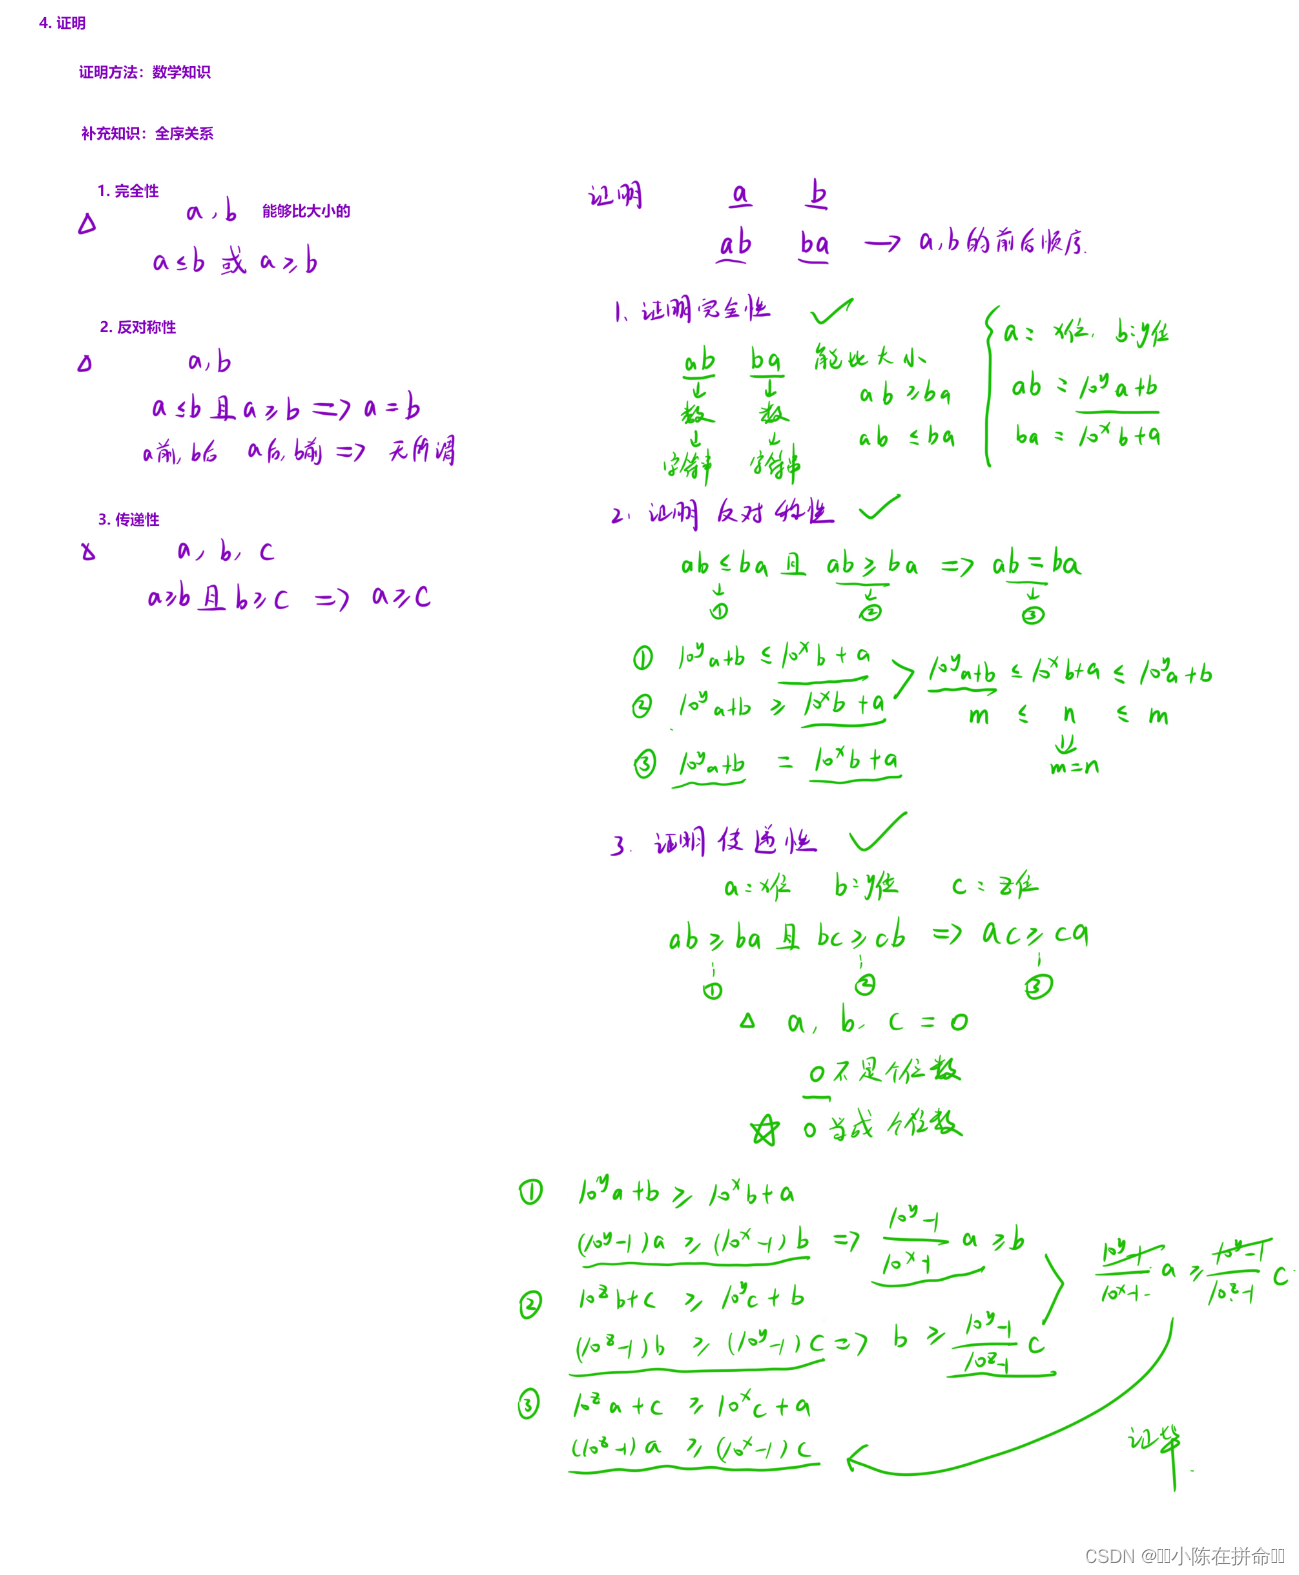 4. 证明
证明方法：数学知识
补充知识：全序关系
1. 完全性
a, b 能够比大小的
a ≤ b 或 a ≥ b
2. 反对称性
a, b
a ≤ b 且 a ≥ b => a = b
a前, b后 a后, b前 => 无所谓
3. 传递性
a, b, c
a ≥ b 且 b ≥ c => a ≥ c
证明 a b
ab ba → a, b的前后顺序.
1. 证明完全性 ✓
ab ba 能比大小
↓ ↓ ab ≥ ba
数 数 ab ≤ ba
↓ ↓
字符串 字符串
a: x位, b: y位
ab = 10^y a+b
ba = 10^x b+a
2. 证明反对称性 ✓
ab ≤ ba 且 ab ≥ ba => ab = ba
↓ ↓ ↓
① ② ③
① 10^y a+b ≤ 10^x b + a
② 10^y a+b ≥ 10^x b + a
10^y a+b ≤ 10^x b+a ≤ 10^y a+b
m ≤ n ≤ m
⇓
m=n
③ 10^y a+b = 10^x b + a
3. 证明传递性 ✓
a: x位 b: y位 c: z位
ab ≥ ba 且 bc ≥ cb => ac ≥ ca
① ② ③
△ a, b, c = 0
0 不是个位数
☆ 0 当成个位数
① 10^y a + b ≥ 10^x b + a
(10^y -1) a ≥ (10^x -1) b => (10^y -1)/(10^x -1) a ≥ b
② 10^z b + c ≥ 10^y c + b
(10^z -1) b ≥ (10^y -1) c => b ≥ (10^y -1)/(10^z -1) c
(10^y -1)/(10^x -1) a ≥ (10^y -1)/(10^z -1) c
③ 10^z a + c ≥ 10^x c + a
(10^z -1) a ≥ (10^x -1) c
证毕.
CSDN @小陈在拼命